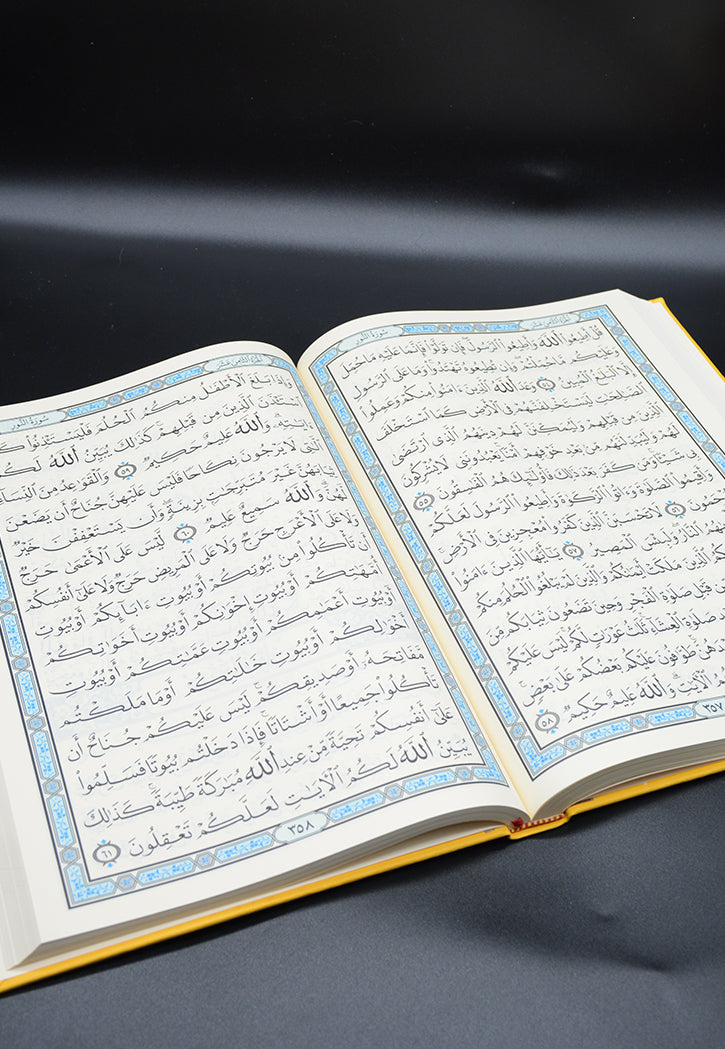 سُورَةُ النُّورِ
الجُزْءُ الثَّامِنَ عَشَرَ
قُلْ أَطِيعُوا۟ ٱللَّهَ وَأَطِيعُوا۟ ٱلرَّسُولَ ۖ فَإِن تَوَلَّوْا۟ فَإِنَّمَا عَلَيْهِ مَا حُمِّلَ
وَعَلَيْكُم مَّا حُمِّلْتُمْ ۖ وَإِن تُطِيعُوهُ تَهْتَدُوا۟ ۚ وَمَا عَلَى ٱلرَّسُولِ
إِلَّا ٱلْبَلَٰغُ ٱلْمُبِينُ ٥٤ وَعَدَ ٱللَّهُ ٱلَّذِينَ ءَامَنُوا۟ مِنكُمْ وَعَمِلُوا۟
ٱلصَّٰلِحَٰتِ لَيَسْتَخْلِفَنَّهُمْ فِى ٱلْأَرْضِ كَمَا ٱسْتَخْلَفَ
ٱلَّذِينَ مِن قَبْلِهِمْ وَلَيُمَكِّنَنَّ لَهُمْ دِينَهُمُ ٱلَّذِى ٱرْتَضَىٰ
لَهُمْ وَلَيُبَدِّلَنَّهُم مِّنۢ بَعْدِ خَوْفِهِمْ أَمْنًا ۚ يَعْبُدُونَنِى لَا يُشْرِكُونَ
بِى شَيْـًٔا ۚ وَمَن كَفَرَ بَعْدَ ذَٰلِكَ فَأُو۟لَٰٓئِكَ هُمُ ٱلْفَٰسِقُونَ ٥٥
وَأَقِيمُوا۟ ٱلصَّلَوٰةَ وَءَاتُوا۟ ٱلزَّكَوٰةَ وَأَطِيعُوا۟ ٱلرَّسُولَ لَعَلَّكُمْ
٥٦ لَا تَحْسَبَنَّ ٱلَّذِينَ كَفَرُوا۟ مُعْجِزِينَ فِى ٱلْأَرْضِ ۚ
ٱلنَّارُ ۖ وَلَبِئْسَ ٱلْمَصِيرُ ٥٧ يَٰٓأَيُّهَا ٱلَّذِينَ ءَامَنُوا۟
ٱلَّذِينَ مَلَكَتْ أَيْمَٰنُكُمْ وَٱلَّذِينَ لَمْ يَبْلُغُوا۟ ٱلْحُلُمَ مِنكُمْ
قَبْلِ صَلَوٰةِ ٱلْفَجْرِ وَحِينَ تَضَعُونَ ثِيَابَكُم مِّنَ
صَلَوٰةِ ٱلْعِشَآءِ ۚ ثَلَٰثُ عَوْرَٰتٍ لَّكُمْ ۚ لَيْسَ عَلَيْكُمْ
طَوَّٰفُونَ عَلَيْكُم بَعْضُكُمْ عَلَىٰ بَعْضٍ ۚ
ٱلْءَايَٰتِ ۗ وَٱللَّهُ عَلِيمٌ حَكِيمٌ ٥٨
٣٥٧
الجُزْءُ الثَّامِنَ عَشَرَ
سُورَةُ النُّورِ
وَإِذَا بَلَغَ ٱلْأَطْفَٰلُ مِنكُمُ ٱلْحُلُمَ فَلْيَسْتَـْٔذِنُوا۟
ٱسْتَـْٔذَنَ ٱلَّذِينَ مِن قَبْلِهِمْ ۚ كَذَٰلِكَ يُبَيِّنُ ٱللَّهُ لَكُمْ
ءَايَٰتِهِۦ ۗ وَٱللَّهُ عَلِيمٌ حَكِيمٌ ٥٩ وَٱلْقَوَٰعِدُ مِنَ ٱلنِّسَآءِ
ٱلَّٰتِى لَا يَرْجُونَ نِكَاحًا فَلَيْسَ عَلَيْهِنَّ جُنَاحٌ أَن يَضَعْنَ
ثِيَابَهُنَّ غَيْرَ مُتَبَرِّجَٰتٍۭ بِزِينَةٍ ۖ وَأَن يَسْتَعْفِفْنَ خَيْرٌ
لَّهُنَّ ۗ وَٱللَّهُ سَمِيعٌ عَلِيمٌ ٦٠ لَّيْسَ عَلَى ٱلْأَعْمَىٰ حَرَجٌ
وَلَا عَلَى ٱلْأَعْرَجِ حَرَجٌ وَلَا عَلَى ٱلْمَرِيضِ حَرَجٌ وَلَا عَلَىٰٓ أَنفُسِكُمْ
أَن تَأْكُلُوا۟ مِنۢ بُيُوتِكُمْ أَوْ بُيُوتِ ءَابَآئِكُمْ أَوْ بُيُوتِ
أُمَّهَٰتِكُمْ أَوْ بُيُوتِ إِخْوَٰنِكُمْ أَوْ بُيُوتِ أَخَوَٰتِكُمْ
أَوْ بُيُوتِ أَعْمَٰمِكُمْ أَوْ بُيُوتِ عَمَّٰتِكُمْ أَوْ بُيُوتِ
أَخْوَٰلِكُمْ أَوْ بُيُوتِ خَٰلَٰتِكُمْ أَوْ مَا مَلَكْتُم
مَّفَاتِحَهُۥٓ أَوْ صَدِيقِكُمْ ۚ لَيْسَ عَلَيْكُمْ جُنَاحٌ أَن
تَأْكُلُوا۟ جَمِيعًا أَوْ أَشْتَاتًا ۚ فَإِذَا دَخَلْتُم بُيُوتًا فَسَلِّمُوا۟
عَلَىٰٓ أَنفُسِكُمْ تَحِيَّةً مِّنْ عِندِ ٱللَّهِ مُبَٰرَكَةً طَيِّبَةً ۚ كَذَٰلِكَ
يُبَيِّنُ ٱللَّهُ لَكُمُ ٱلْءَايَٰتِ لَعَلَّكُمْ تَعْقِلُونَ ٦١
٣٥٨